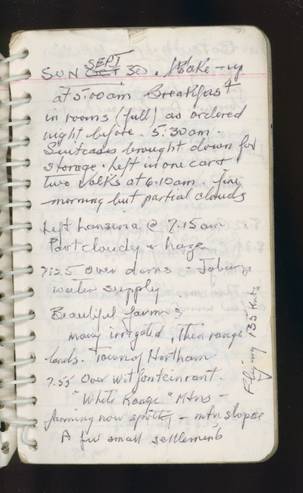 SEPT
SUN OCT 30. Wake-up
at 5:00am Breakfast
in rooms (full) as ordered
night before. 5:30am.
Suitcases brought down for
storage. Left in one car &
two walks at 6:10am. fine
morning but partial clouds
Left Lanseria @ 7.15am
Part cloudy & haze
7:25 Over dams - Joburg
water supply.
Beautiful farms
many irrigated, then range
lands. Town of Northam
7.55 Over Witfonteinrant.
"White Range" Mtns -
farming now spotty - mtn slopes
A few small settlements
Flying 135 knts